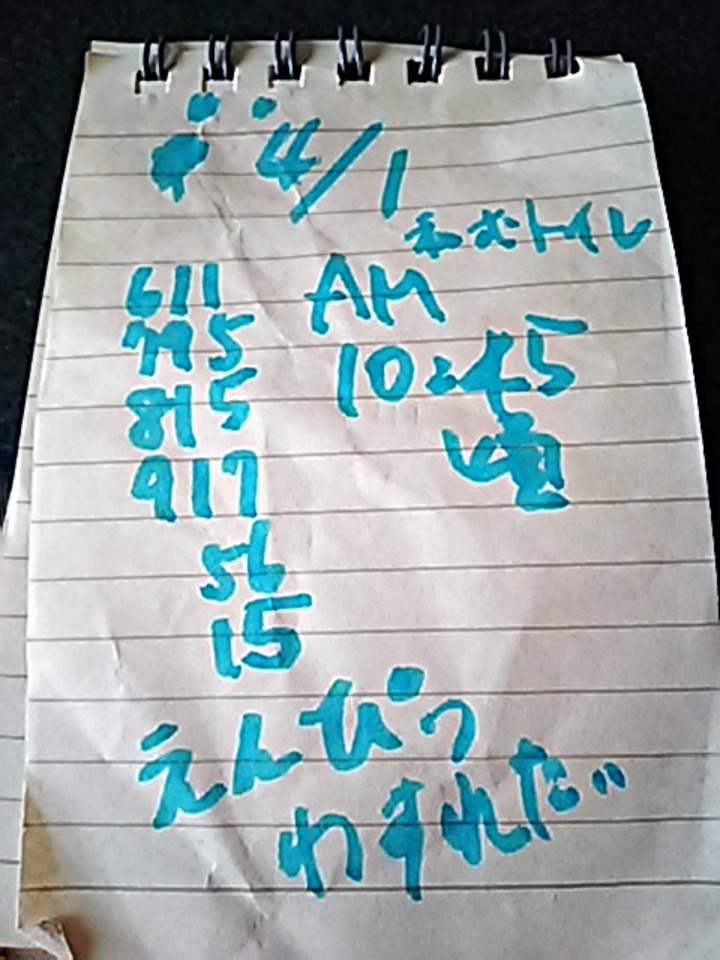 4/1
トイレ
611
795
815
917
56
15
AM
10:45
えんぴつ
わすれた..